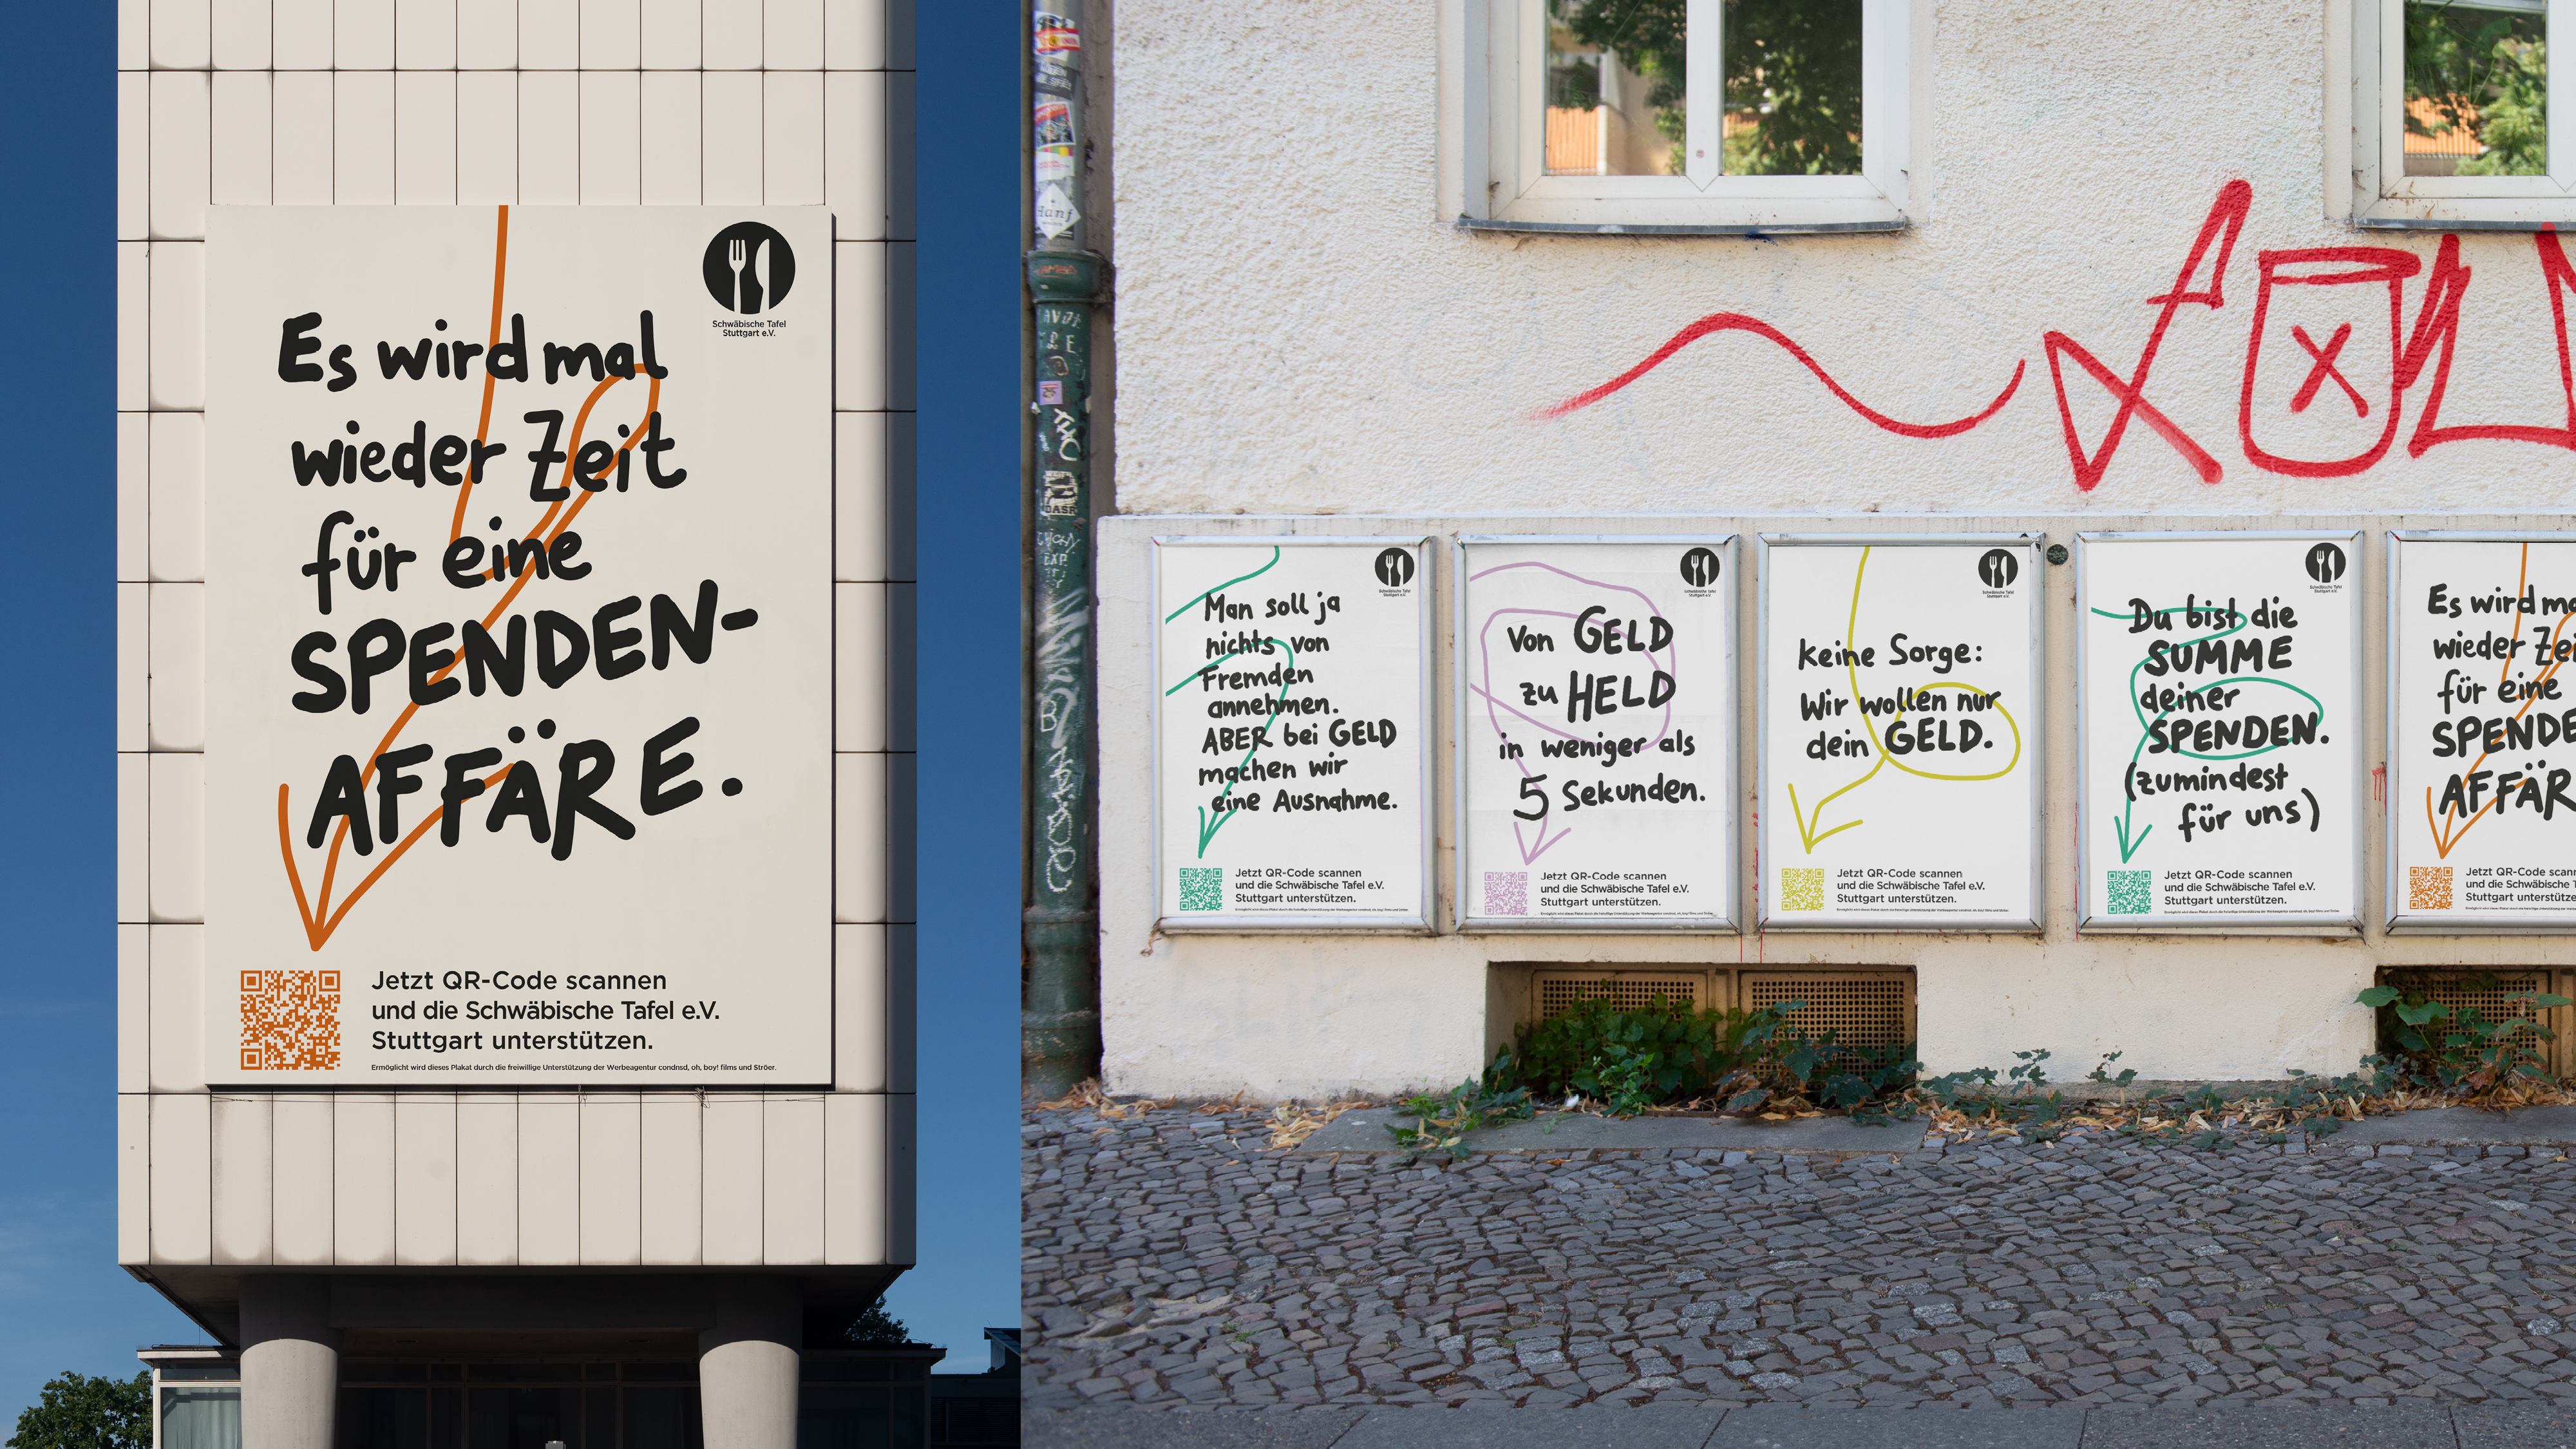 Schwäbische Tafel
Stuttgart e.V.
Es wird mal
wieder Zeit
für eine
SPENDEN-
AFFÄRE.
Jetzt QR-Code scannen
und die Schwäbische Tafel e.V.
Stuttgart unterstützen.
Ermöglicht wird dieses Plakat durch die freiwillige Unterstützung der Werbeagentur condnsd, oh, boy! films und Ströer.
Schwäbische Tafel
Stuttgart e.V.
Man soll ja
nichts von
Fremden
annehmen.
ABER bei GELD
machen wir
eine Ausnahme.
Jetzt QR-Code scannen
und die Schwäbische Tafel e.V.
Stuttgart unterstützen.
Schwäbische Tafel
Stuttgart e.V.
Von GELD
zu HELD
in weniger als
5 Sekunden.
Jetzt QR-Code scannen
und die Schwäbische Tafel e.V.
Stuttgart unterstützen.
Schwäbische Tafel
Stuttgart e.V.
keine Sorge:
Wir wollen nur
dein GELD.
Jetzt QR-Code scannen
und die Schwäbische Tafel e.V.
Stuttgart unterstützen.
Schwäbische Tafel
Stuttgart e.V.
Du bist die
SUMME
deiner
SPENDEN.
(zumindest
für uns)
Jetzt QR-Code scannen
und die Schwäbische Tafel e.V.
Stuttgart unterstützen.
Es wird ma
wieder Zei
für eine
SPENDE
AFFÄR
Jetzt QR-Code scan
und die Schwäbische T
Stuttgart unterstütze